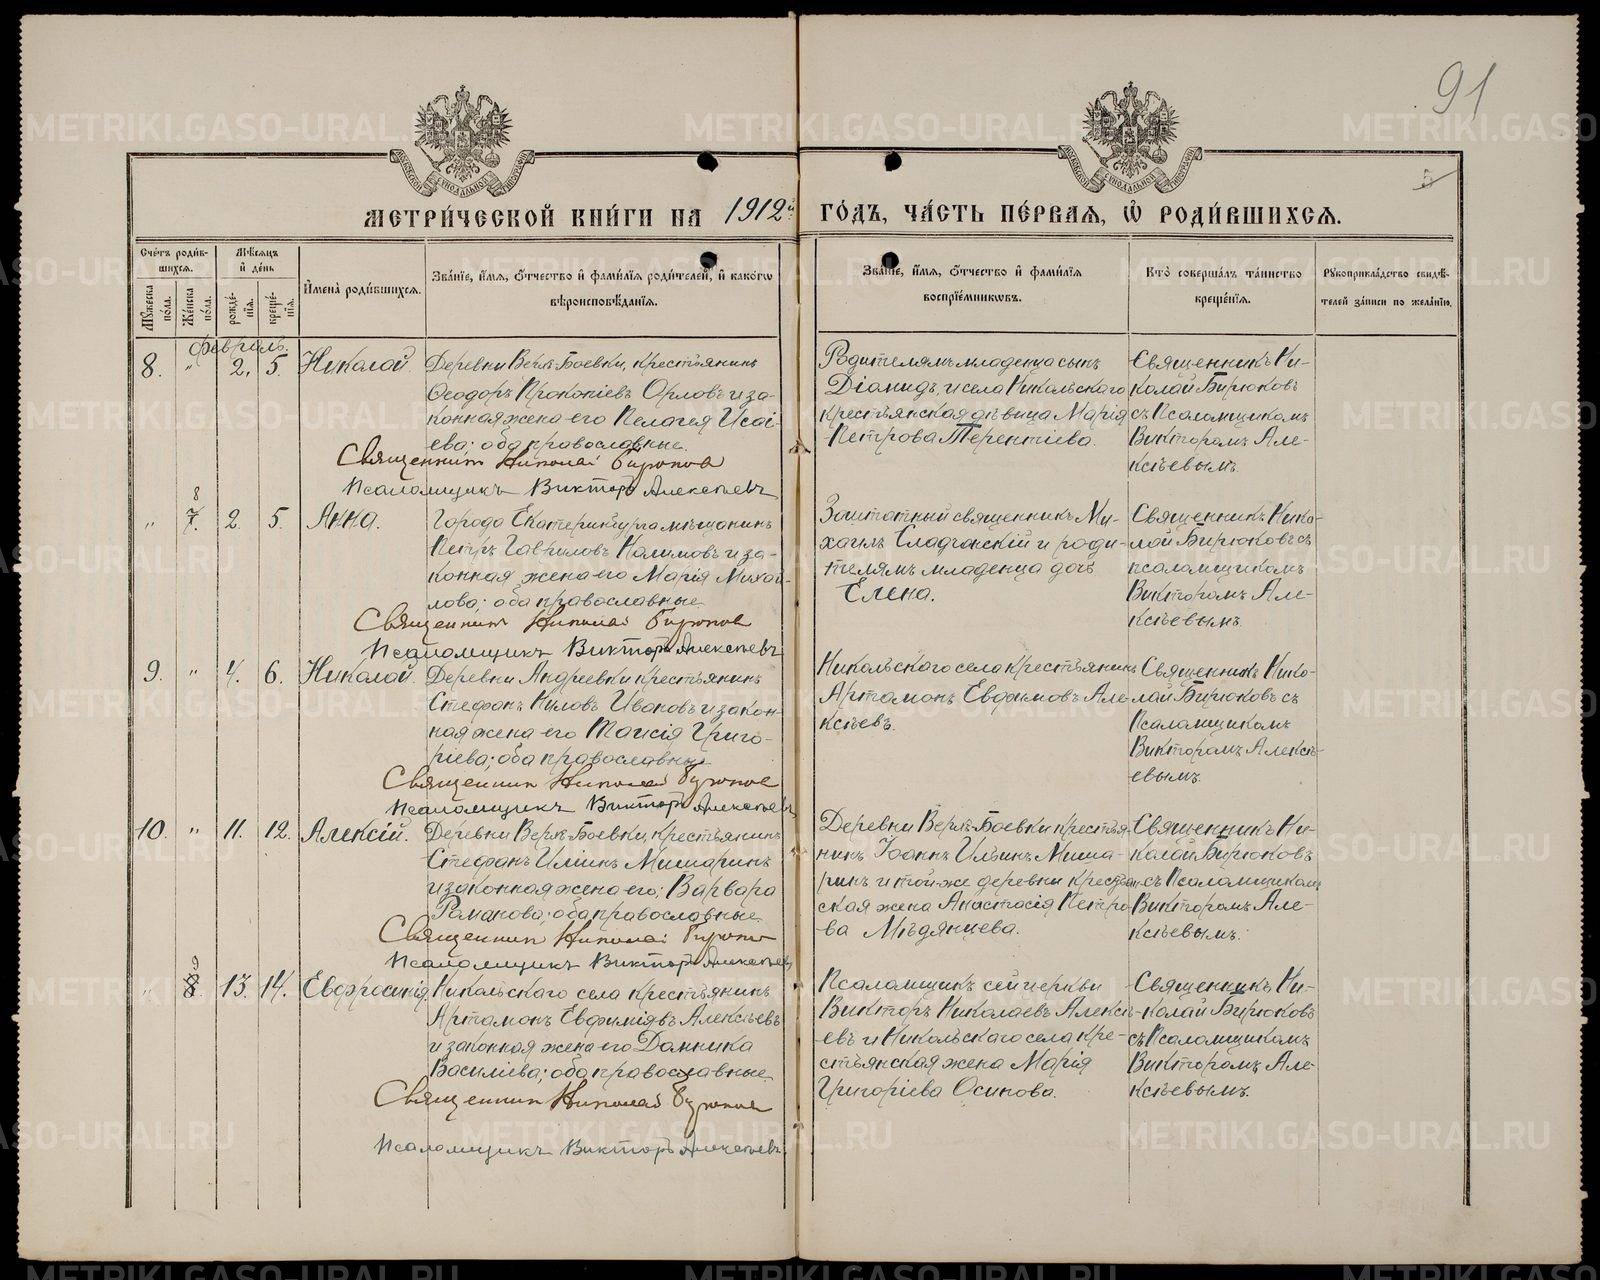 91
5
МЕТРИ́ЧЕСКОЙ КНИ́ГИ НА 1912й ГО́ДЪ, ЧА́СТЬ ПЕ́РВАѦ, Ѡ҆ РОДИ́ВШИХСѦ.
Сче́тъ роди́вшихсѧ.
Мꙋ́жеска по́ла.
Же́нска по́ла.
Мѣ́сѧцъ и҆ де́нь
рожде́нїѧ.
креще́нїѧ.
И҆мена̀ роди́вшихсѧ.
Зва́нїе, и҆́мѧ, ѻ҆́тчество и҆ фами́лїѧ роди́телей, и҆ како́гѡ
вѣроисповѣ́данїѧ.
Зва́нїе, и҆́мѧ, ѻ҆́тчество и҆ фами́лїѧ
воспрїе́мникѡвъ.
Кто̀ соверша́лъ та́инство
креще́нїѧ.
Рꙋкоприкла́дство свидѣ́-
телей за́писи по жела́нїю.
Февраль.
8. " 2. 5. Николай.
Деревни Верх-Боевки, крестьянинъ
Ѳеодоръ Прокопіевъ Орловъ и за-
конная жена его Пелагея Исаі-
ева; оба православные.
Священникъ Николай Бирюков
Псаломщикъ Викторъ Алексѣевъ
Родителямъ младенца сынъ
Діомидъ, и села Никольскаго
крестьянская дѣвица Марія
Петрова Терентіева.
Священникъ Ни-
колай Бирюковъ
съ Псаломщикомъ
Викторомъ Але-
ксѣевымъ.
" 7. 8 2. 5. Анна.
Города Екатеринбурга мѣщанинъ
Петръ Гавриловъ Налимовъ и за-
конная жена его Марія Михай-
лова; оба православные.
Священникъ Николай Бирюков
Псаломщикъ Викторъ Алексѣевъ
Заштатный священникъ Ми-
хаилъ Сладчанскій и роди-
телямъ младенца дочь
Елена.
Священникъ Нико-
лай Бирюковъ съ
псаломщикомъ
Викторомъ Але-
ксѣевымъ.
9. " 4. 6. Николай.
Деревни Андреевки крестьянинъ
Стефанъ Ниловъ Ивановъ и закон-
ная жена его Таисія Григо-
ріева; оба православные.
Священник Николай Бирюков
Псаломщикъ Викторъ Алексѣевъ
Никольскаго села крестьянинъ
Артамонъ Евфимовъ Але-
ксѣевъ.
Священникъ Нико-
лай Бирюковъ съ
Псаломщикомъ
Викторомъ Алексѣ-
евымъ.
10. " 11. 12. Алексій.
Деревни Верх-Боевки, крестьянинъ
Стефанъ Иліинъ Мишаринъ
и законная жена его; Варвара
Романова; оба православные.
Священник Николай Бирюков
Псаломщикъ Викторъ Алексѣевъ
Деревни Верх-Боевки крестья-
нинъ Іоаннъ Ильинъ Миша-
ринъ и той-же деревни крестьян-
ская жена Анастасія Петро-
ва Мѣдянцева.
Священникъ Ни-
колай Бирюковъ
съ Псаломщикомъ
Викторомъ Але-
ксѣевымъ.
" 8. 9 13. 14. Евфросинія
Никольскаго села крестьянинъ
Артамонъ Евфиміявъ Алексѣевъ
и законная жена его Домника
Василіева; оба православные.
Священник Николай Бирюков
Псаломщикъ Викторъ Алексѣевъ
Псаломщикъ сей церкви
Викторъ Николаевъ Алексѣ-
евъ и Никольскаго села кре-
стьянская жена Марія
Григоріева Осипова.
Священникъ Ни-
колай Бирюковъ
съ Псаломщикомъ
Викторомъ Але-
ксѣевымъ.
METRIKI.GASO-URAL.RU